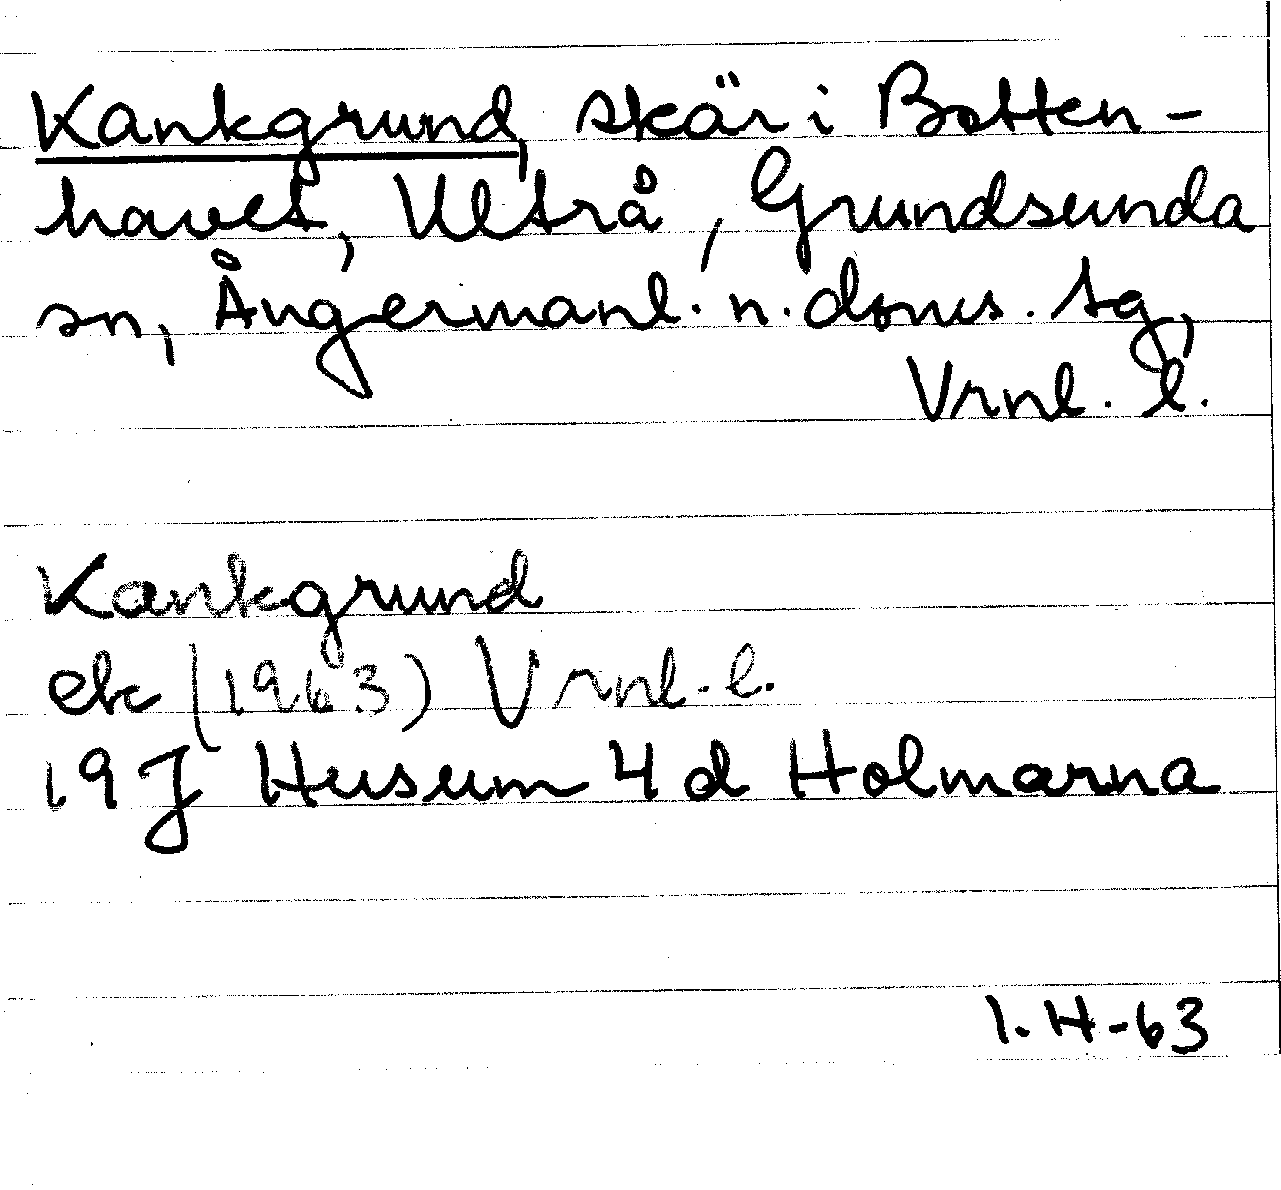 Kankgrund, skär i Botten-
havet, Ulvrå, Grundsunda
sn, Ångermanl. n. doms. sg,
Vrnl. l.
Kankgrund
ek (1963) Vrnl. l.
19 J Husum 4 d Holmarna
I. H-63